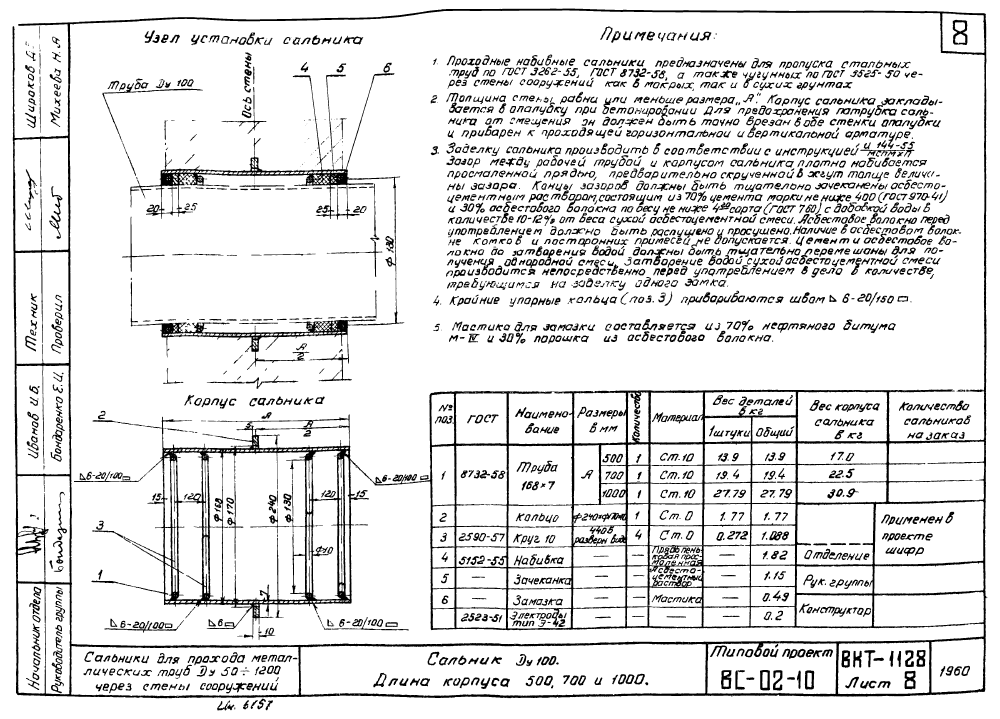 8
Узел установки сальника
Труба Ду 100
Ось стены
4 5 6
20 25
25 20
ф 130
А
2
Корпус сальника
А
5
А
2
2
6-20/100
6-20/100
15 120
120 15
ф 168
ф 170
ф 240
ф 130
ф10
3
1
7
6-20/100
6
6-20/100
10
Примечания:
1. Проходные набивные сальники предназначены для пропуска стальных
труб по ГОСТ 3262-55, ГОСТ 8732-58, а также чугунных по ГОСТ 3525-50 че-
рез стены сооружений как в мокрых, так и в сухих грунтах
2. Толщина стены равна или меньше размера „А". Корпус сальника заклады-
вается в опалубку при бетонировании Для предохранения патрубка саль-
ника от смещения он должен быть точно врезан в обе стенки опалубки
и приварен к проходящей горизонтальной и вертикальной арматуре.
3. Заделку сальника производить в соответствии с инструкцией И 144-55
МСПМХП
Зазор между рабочей трубой и корпусом сальника плотно набивается
просмаленной прядью, предварительно скрученной в жгут толще величи-
ны зазора. Концы зазоров должны быть тщательно зачеканены асбесто-
цементным раствором, состоящим из 70% цемента марки не ниже 400 (ГОСТ 970-41)
и 30% асбестового волокна по весу не ниже 4го сорта (ГОСТ 760) с добавкой воды в
количестве 10-12% от веса сухой асбестоцементной смеси. Асбестовое волокно перед
употреблением должно быть распушено и просушено. Наличие в асбестовом волок-
не комков и посторонних примесей не допускается. Цемент и асбестовое во-
локно до затворения водой должны быть тщательно перемешаны для по-
лучения однородной смеси. Затворение водой сухой асбестоцементной смеси
производится непосредственно перед употреблением в дело в количестве,
требующимся на заделку одного замка.
4. Крайние упорные кольца (поз. 3) привариваются швом 6-20/150
5. Мастика для замазки составляется из 70% нефтяного битума
М-IV и 30% порошка из асбестового волокна.
№ поз. ГОСТ Наимено-вание Размеры в мм Количество Материал Вес деталей в кг 1 штуки Общий Вес корпуса сальника в кг Количество сальников на заказ
1 8732-58 Труба 168×7 А 500 1 Ст.10 13.9 13.9 17.0
700 1 Ст.10 19.4 19.4 22.5
1000 1 Ст.10 27.79 27.79 30.9
2 Кольцо ф240×ф170×10 1 Ст.0 1.77 1.77
3 2590-57 Круг 10 440 в разверн виде 4 Ст.0 0.272 1.088
4 5152-55 Набивка — — Прядь пень-ковая прос-моленная — 1.82
5 — Зачеканка — — Асбесто-цементный раствор — 1.15
6 — Замазка — — Мастика — 0.49
2523-51 Электроды тип Э-42 — — — — 0.2
Применен в
проекте
шифр
Отделение
Рук. группы
Конструктор
Широков Д.Г.
Михеева Н.А
Техник
Проверил
Иванов И.В.
Бондаренко Е.И.
Начальник отдела
Руководитель группы
Сальники для прохода метал-
лических труб Ду 50÷1200
через стены сооружений
Сальник Ду 100.
Длина корпуса 500, 700 и 1000.
Типовой проект
ВС-02-10
ВКТ-1128
Лист 8
1960
Ин. 6157